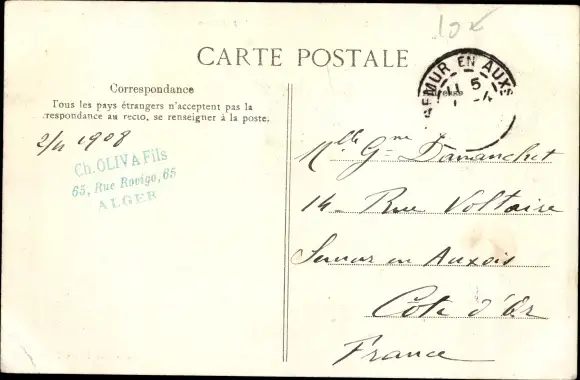 10 €
CARTE POSTALE
SEMUR EN AUXS
11 5
Correspondance
Tous les pays étrangers n'acceptent pas la
correspondance au recto, se renseigner à la poste.
2/4 1908
Ch. OLIVA Fils
65, Rue Rovigo, 65
ALGER
Mlle Gne Damanchet
14 Rue Voltaire
Semur en Auxois
Côte d'Or
France